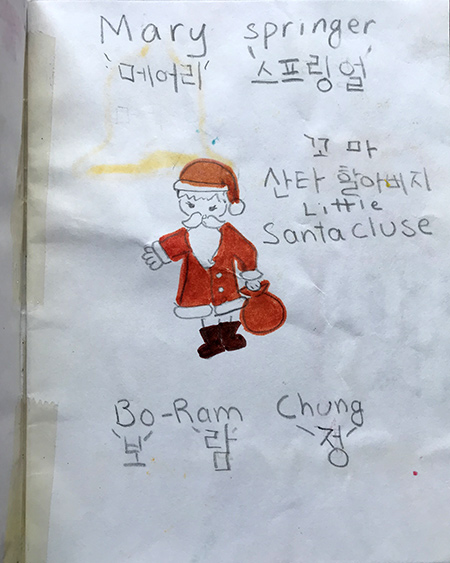 Mary springer
'메어리' '스프링얼'
꼬마
산타 할아버지
Little
Santacluse
Bo-Ram Chung
'보' '람' '정'